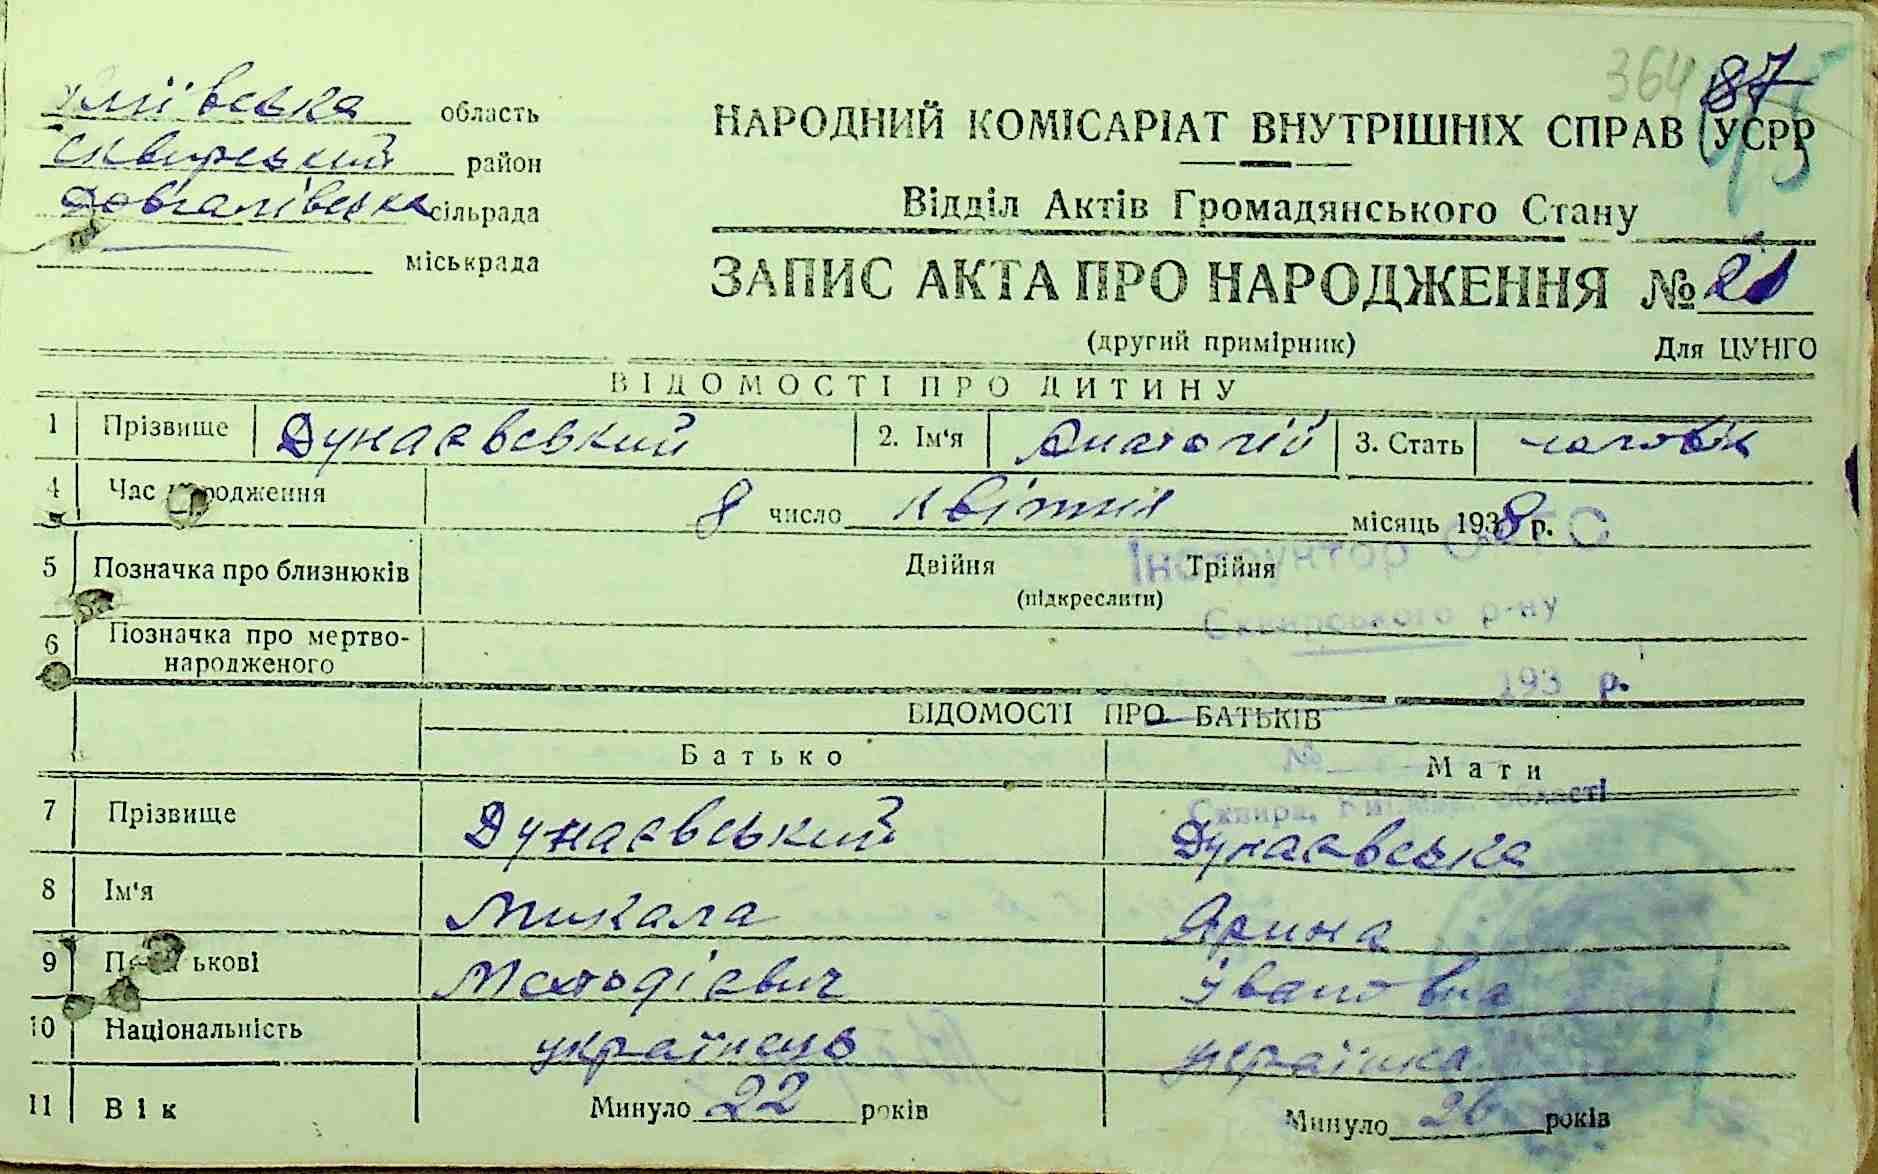 364 87
Київська область
Сквирський район
Довгалівська сільрада
міськрада
НАРОДНИЙ КОМІСАРІАТ ВНУТРІШНІХ СПРАВ УСРР
Відділ Актів Громадянського Стану
ЗАПИС АКТА ПРО НАРОДЖЕННЯ №
(другий примірник) Для ЦУНГО
ВІДОМОСТІ ПРО ДИТИНУ
1 Прізвище Дунаєвський 2. Ім'я Анатолій 3. Стать чоловік
4 Час народження 8 число квітня місяць 1938 р.
Інструктор
5 Позначка про близнюків Двійня Трійня
(підкреслити)
Сквирського р-ну
6 Позначка про мертво-
народженого
193 р.
ВІДОМОСТІ ПРО БАТЬКІВ
Батько Мати
№
Сквира, Київськ. області
7 Прізвище Дунаєвський Дунаєвська
8 Ім'я Микала Ярина
9 По батькові Мефодієвич Івановна
10 Національність українець українка
11 Вік Минуло 22 років Минуло 26 років